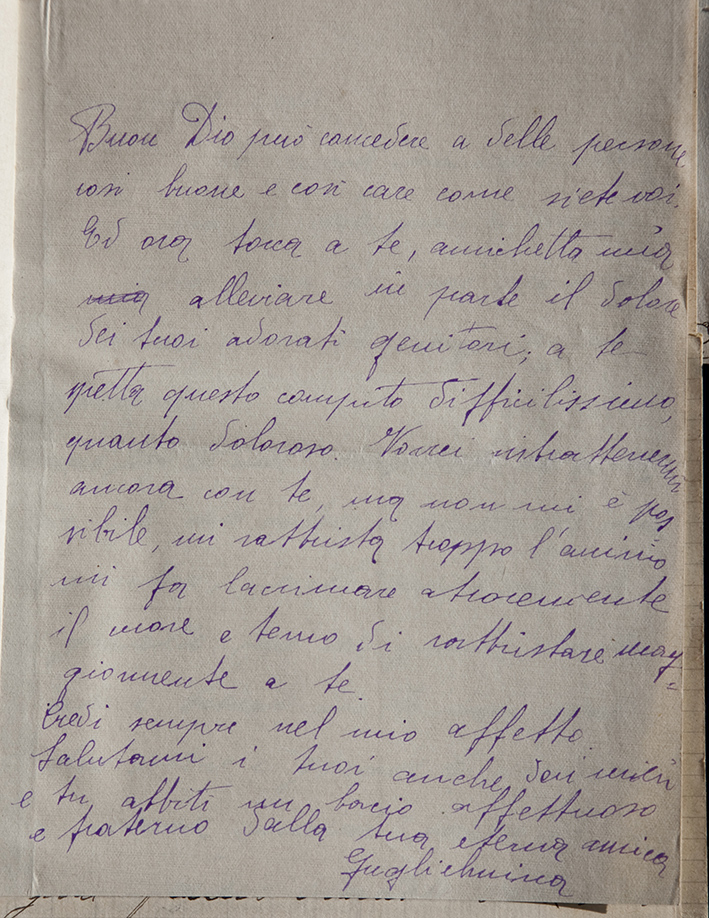 Buon Dio può concedere a delle persone
così buone e così care come siete voi.
Ed ora tocca a te, amichetta mia
mia alleviare in parte il dolore
dei tuoi adorati genitori; a te
spetta questo compito difficilissimo,
quanto doloroso. Vorrei intrattenermi
ancora con te, ma non mi è pos
sibile, mi rattrista troppo l'animo
mi fa lacrimare atrocemente
il cuore e temo di rattristare mag=
giormente a te.
Credi sempre nel mio affetto.
Salutami i tuoi anche dai miei
e tu abbiti un bacio affettuoso
e fraterno dalla tua eterna amica
Guglielmina